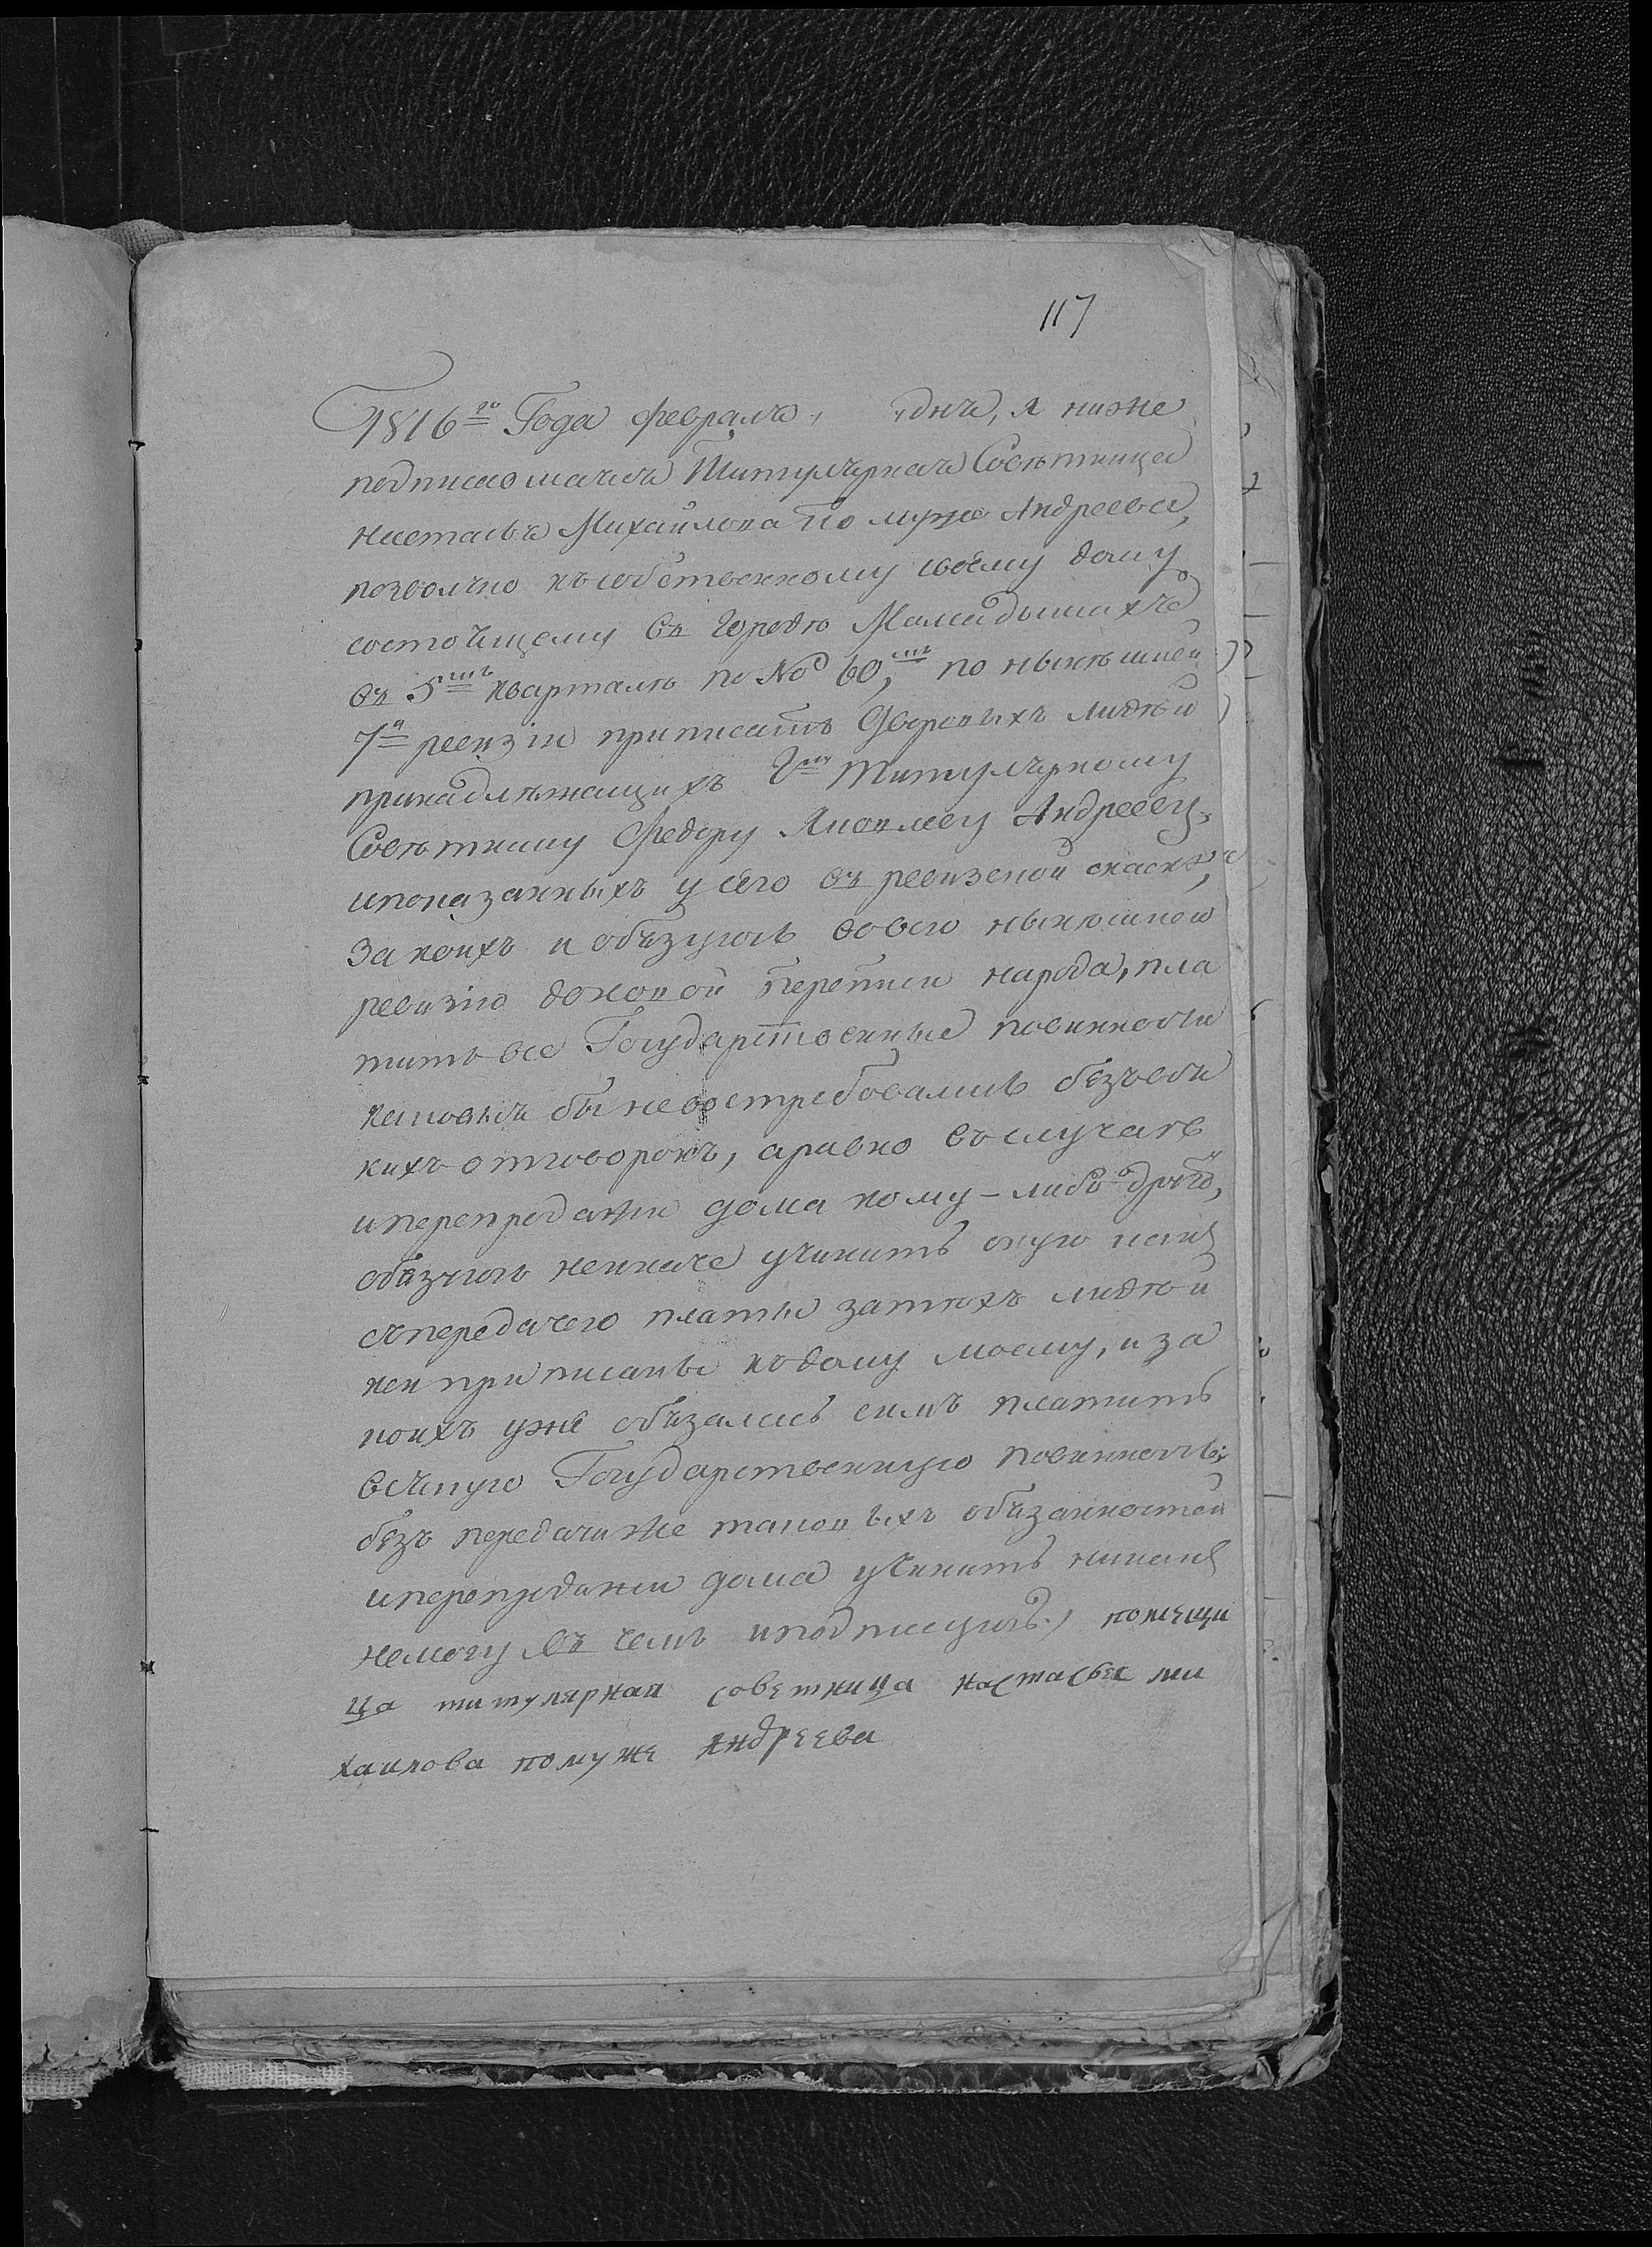 117
1816го Года февраля дня, я ниже
подписавшаяся Титулярная Советница
Настасья Михайлова по муже Андреева,
позволяю къ собственному своему дому
состоящему въ городѣ Мамадышахъ
въ 5мъ кварталѣ по № 60,мъ по нынѣшней
7й ревизіи приписать дворовыхъ людѣй
принадлѣжащихъ Гну Титулярному
Совѣтнику Федору Яковлеву Андрееву,
ипоказанныхъ у его въ ревизской скаске,
За коихъ и обязуюсь во всю нынѣшнюю
ревизію до новой переписи народа, пла
тить все Государственные повинности
каковыя бы не востребовались безъ вся
кихъ отговорокъ, аравно вслучаѣ
иперепродажи дома кому-либо
обязуюсь неиначе учинить оную какъ
спередачею платы затѣхъ людѣй
кои приписаны кдому моему, и за
коихъ уже обязалась симъ платить
всякую Государственную повинность;
безъ передачи же таковыхъ обязанностей
иперепродажи дома учинить никакъ
немогу въ чемъ иподписуюсь, помещи
ца титулярная советница настасья ми
хаилова помуже андреева